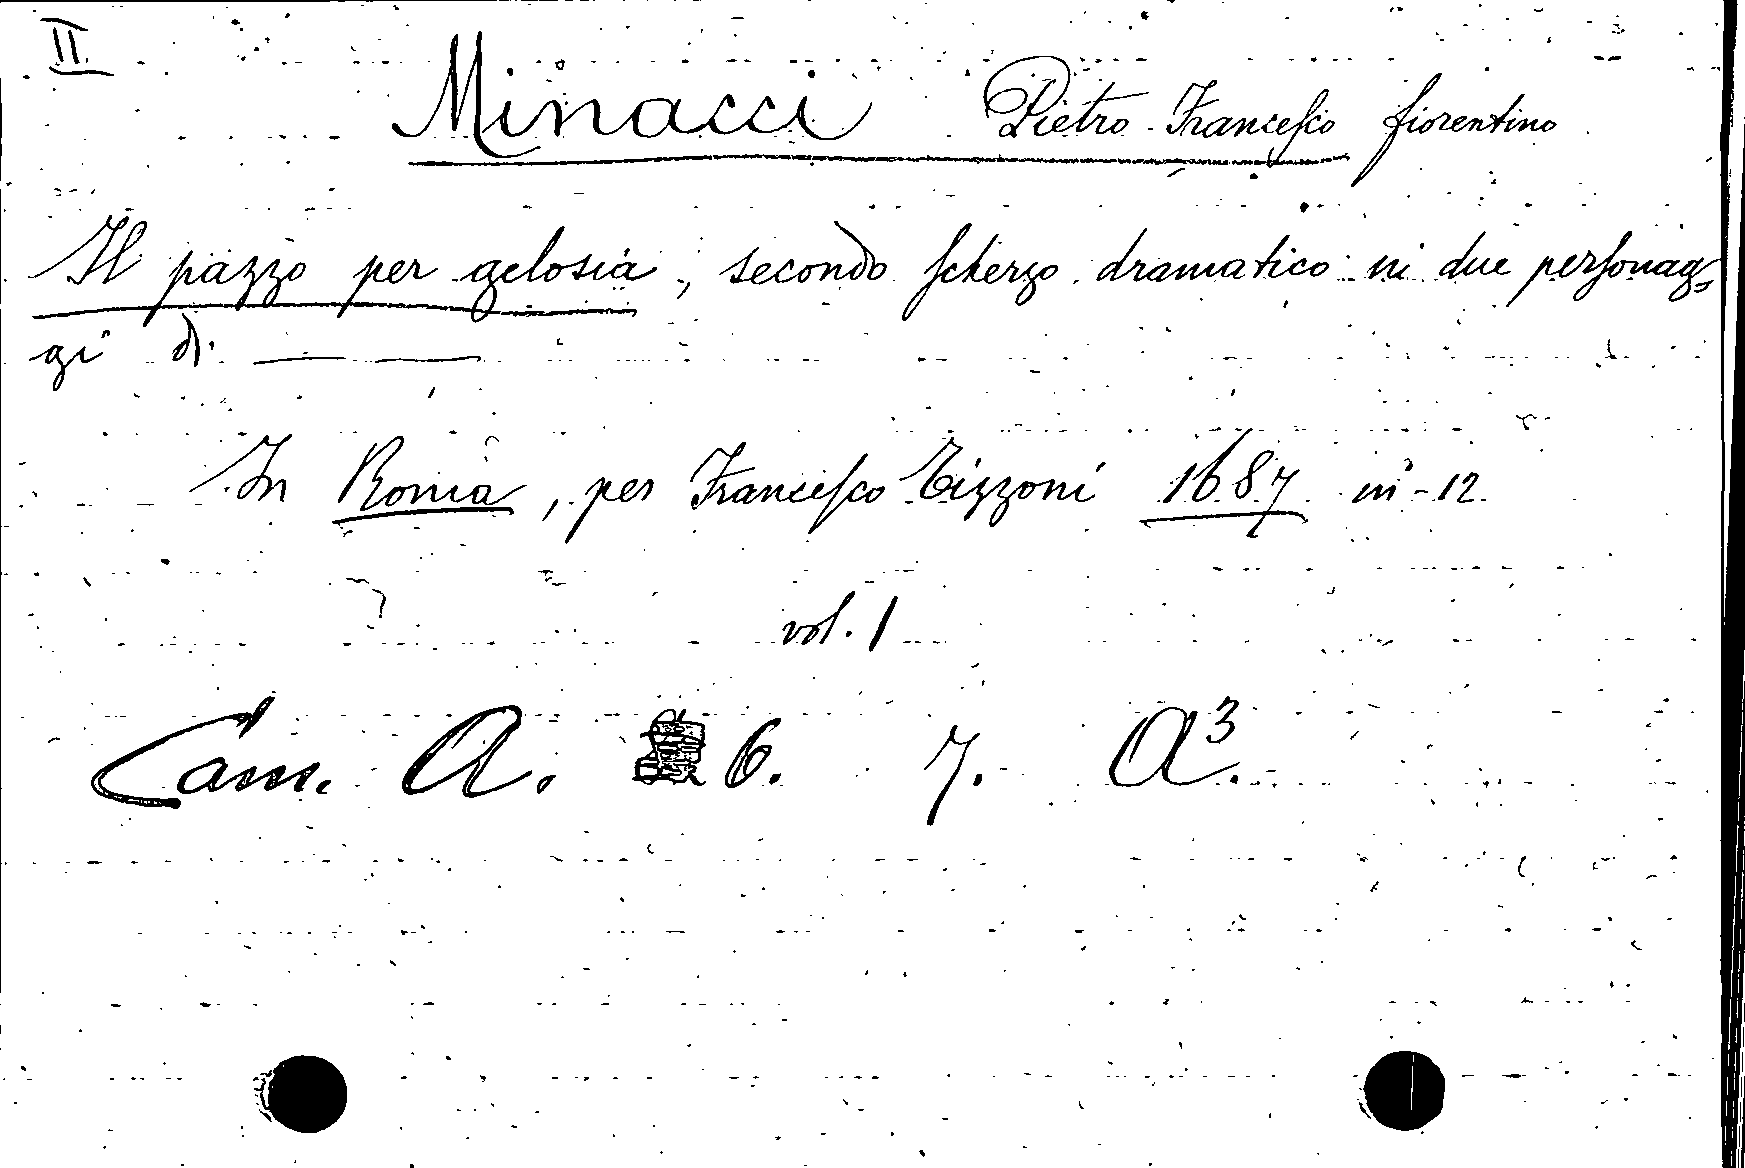 II.
Minacci Pietro Francesco fiorentino
Il pazzo per gelosia, secondo scherzo dramatico in due personag=
gi di ———
In Roma, per Francesco Tizzoni 1687 in-12
vol. 1
Cam. A. 6. 7. A³.